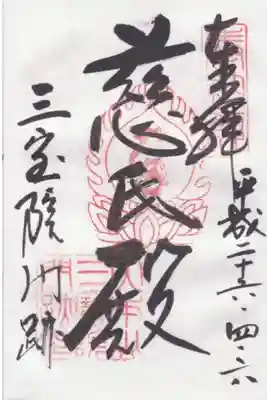 奉拝
平成二十六・四・六
慈氏殿
三宝院門跡